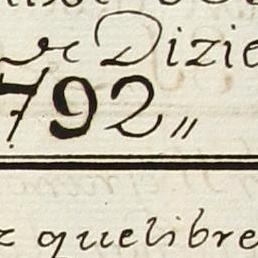 de Dizie
792,,
quelibre